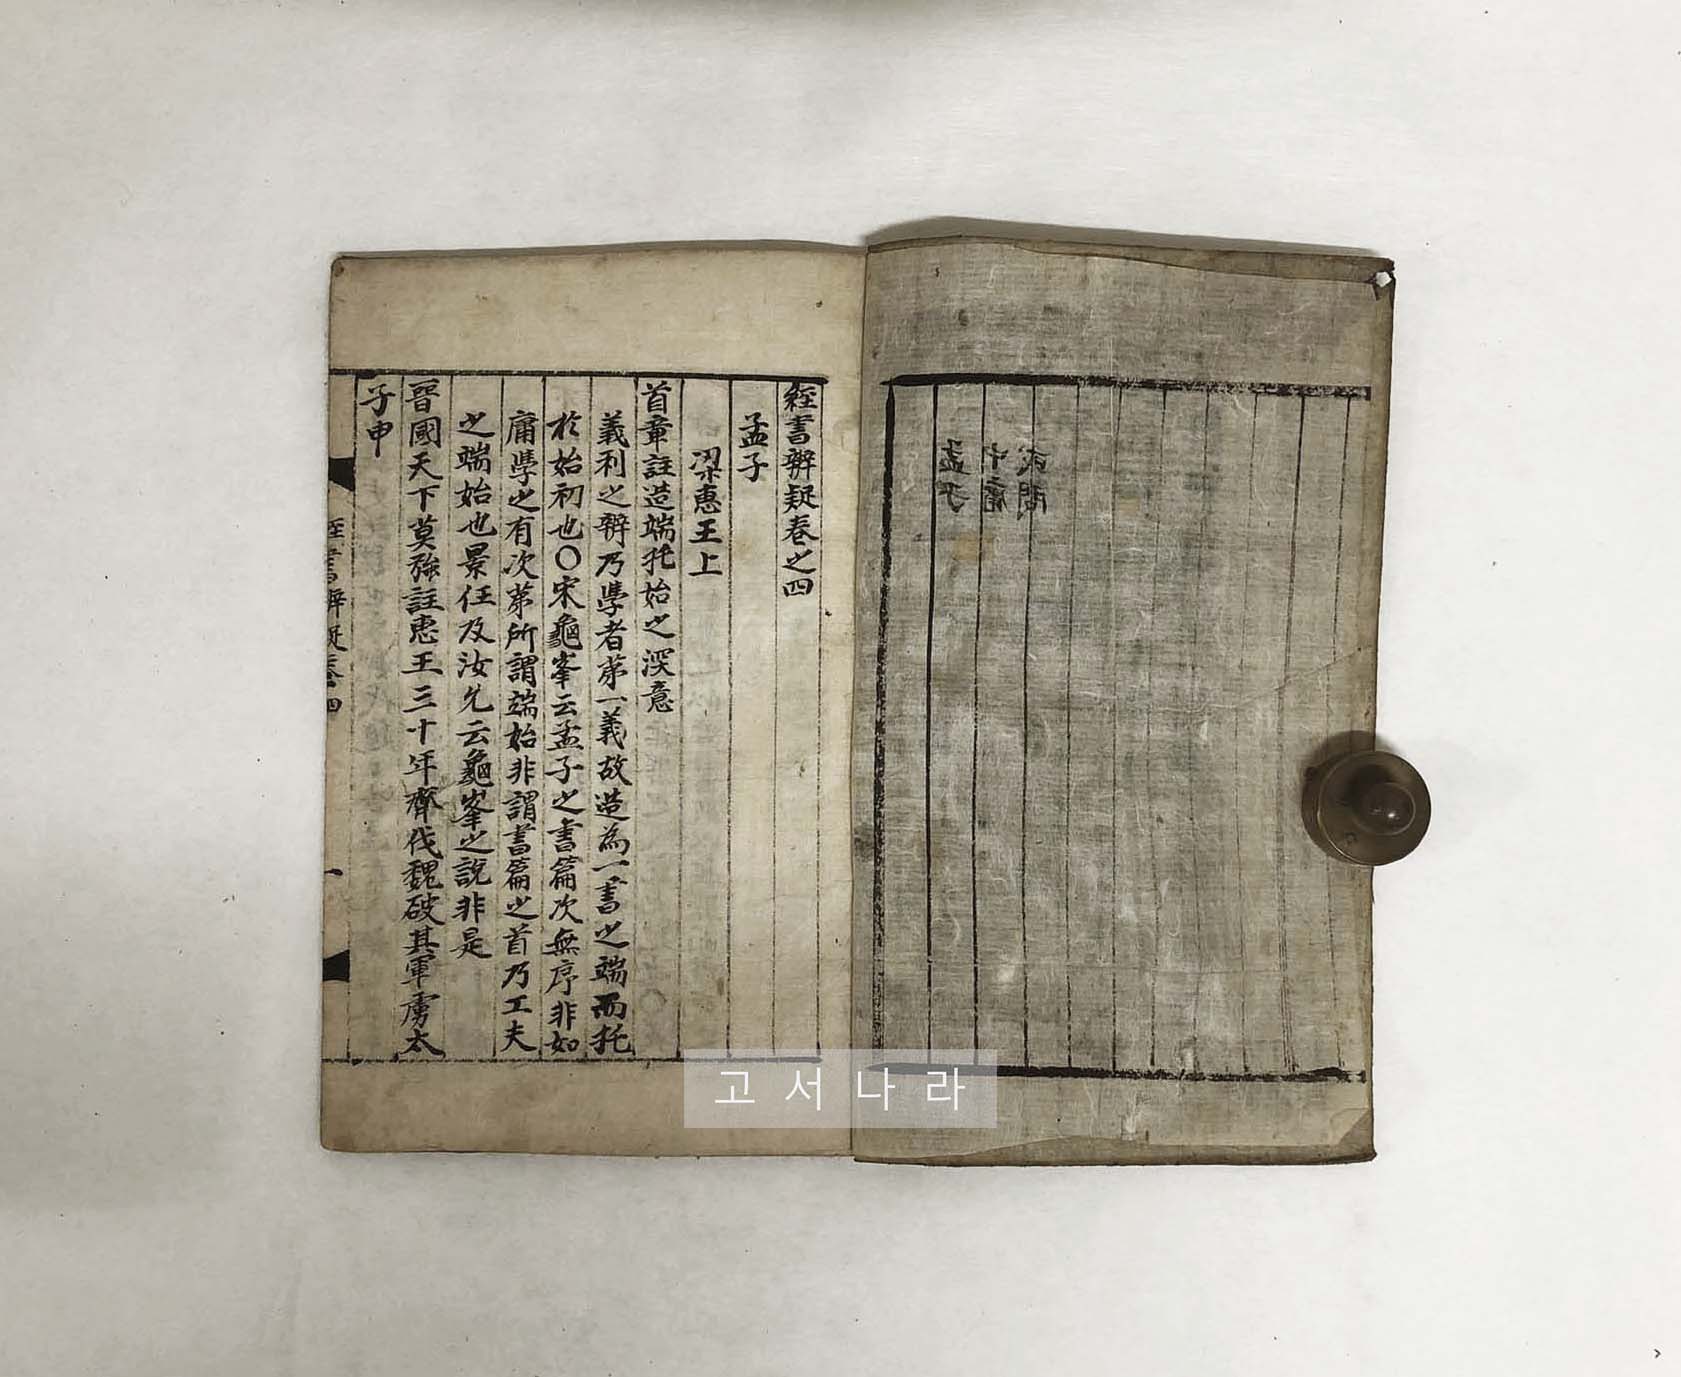 經書辨疑卷之四
孟子
梁惠王上
首章註造端托始之深意
義利之辨乃學者第一義故造為一書之端而托
於始初也〇宋龜峯云孟子之書篇次無序非如
庸學之有次第所謂端始非謂書篇之首乃工夫
之端始也景任及汝允云龜峯之說非是
晉國天下莫强註惠王三十年齊伐魏破其軍虜太
子申
經書辨疑卷四
一
或問
中庸
孟子
고서나라